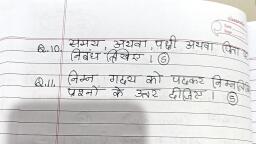 Q.10. समय, अथवा, पक्षी अथवा
निबंध लिखिए । (5)
Q.11. निम्न गद्य को पढकर
प्रश्नों के उत्तर दीजिए । (5)